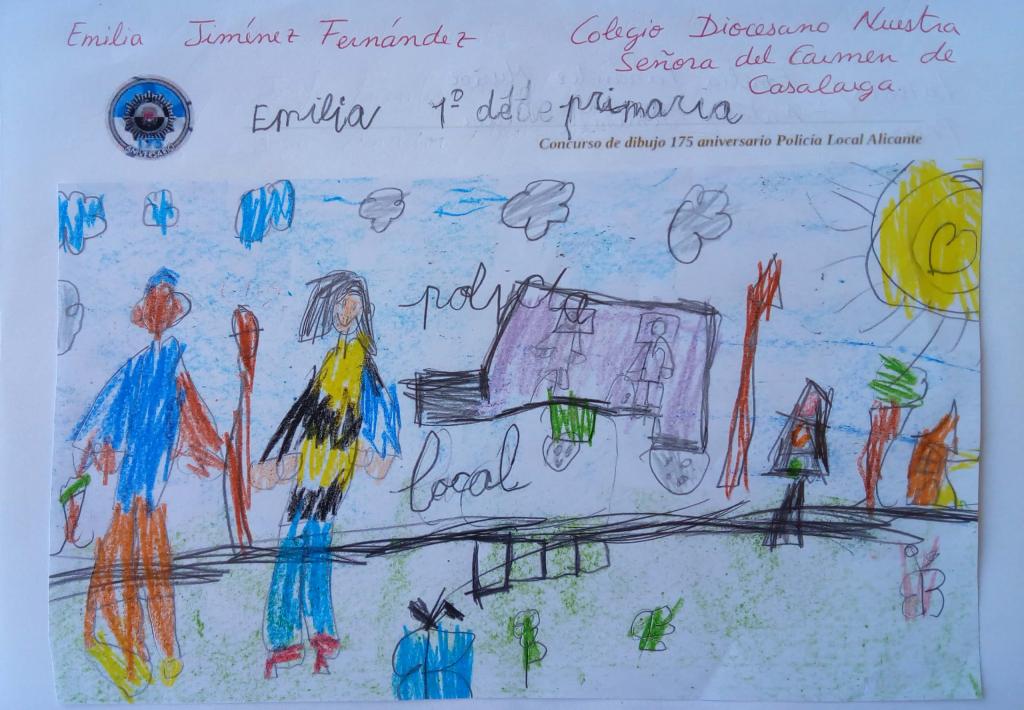 Emilia Jiménez Fernández
Colegio Diocesano Nuestra
Señora del Carmen de
Casalarga
Emilia 1º de primaria
Concurso de dibujo 175 aniversario Policía Local Alicante
policía
local